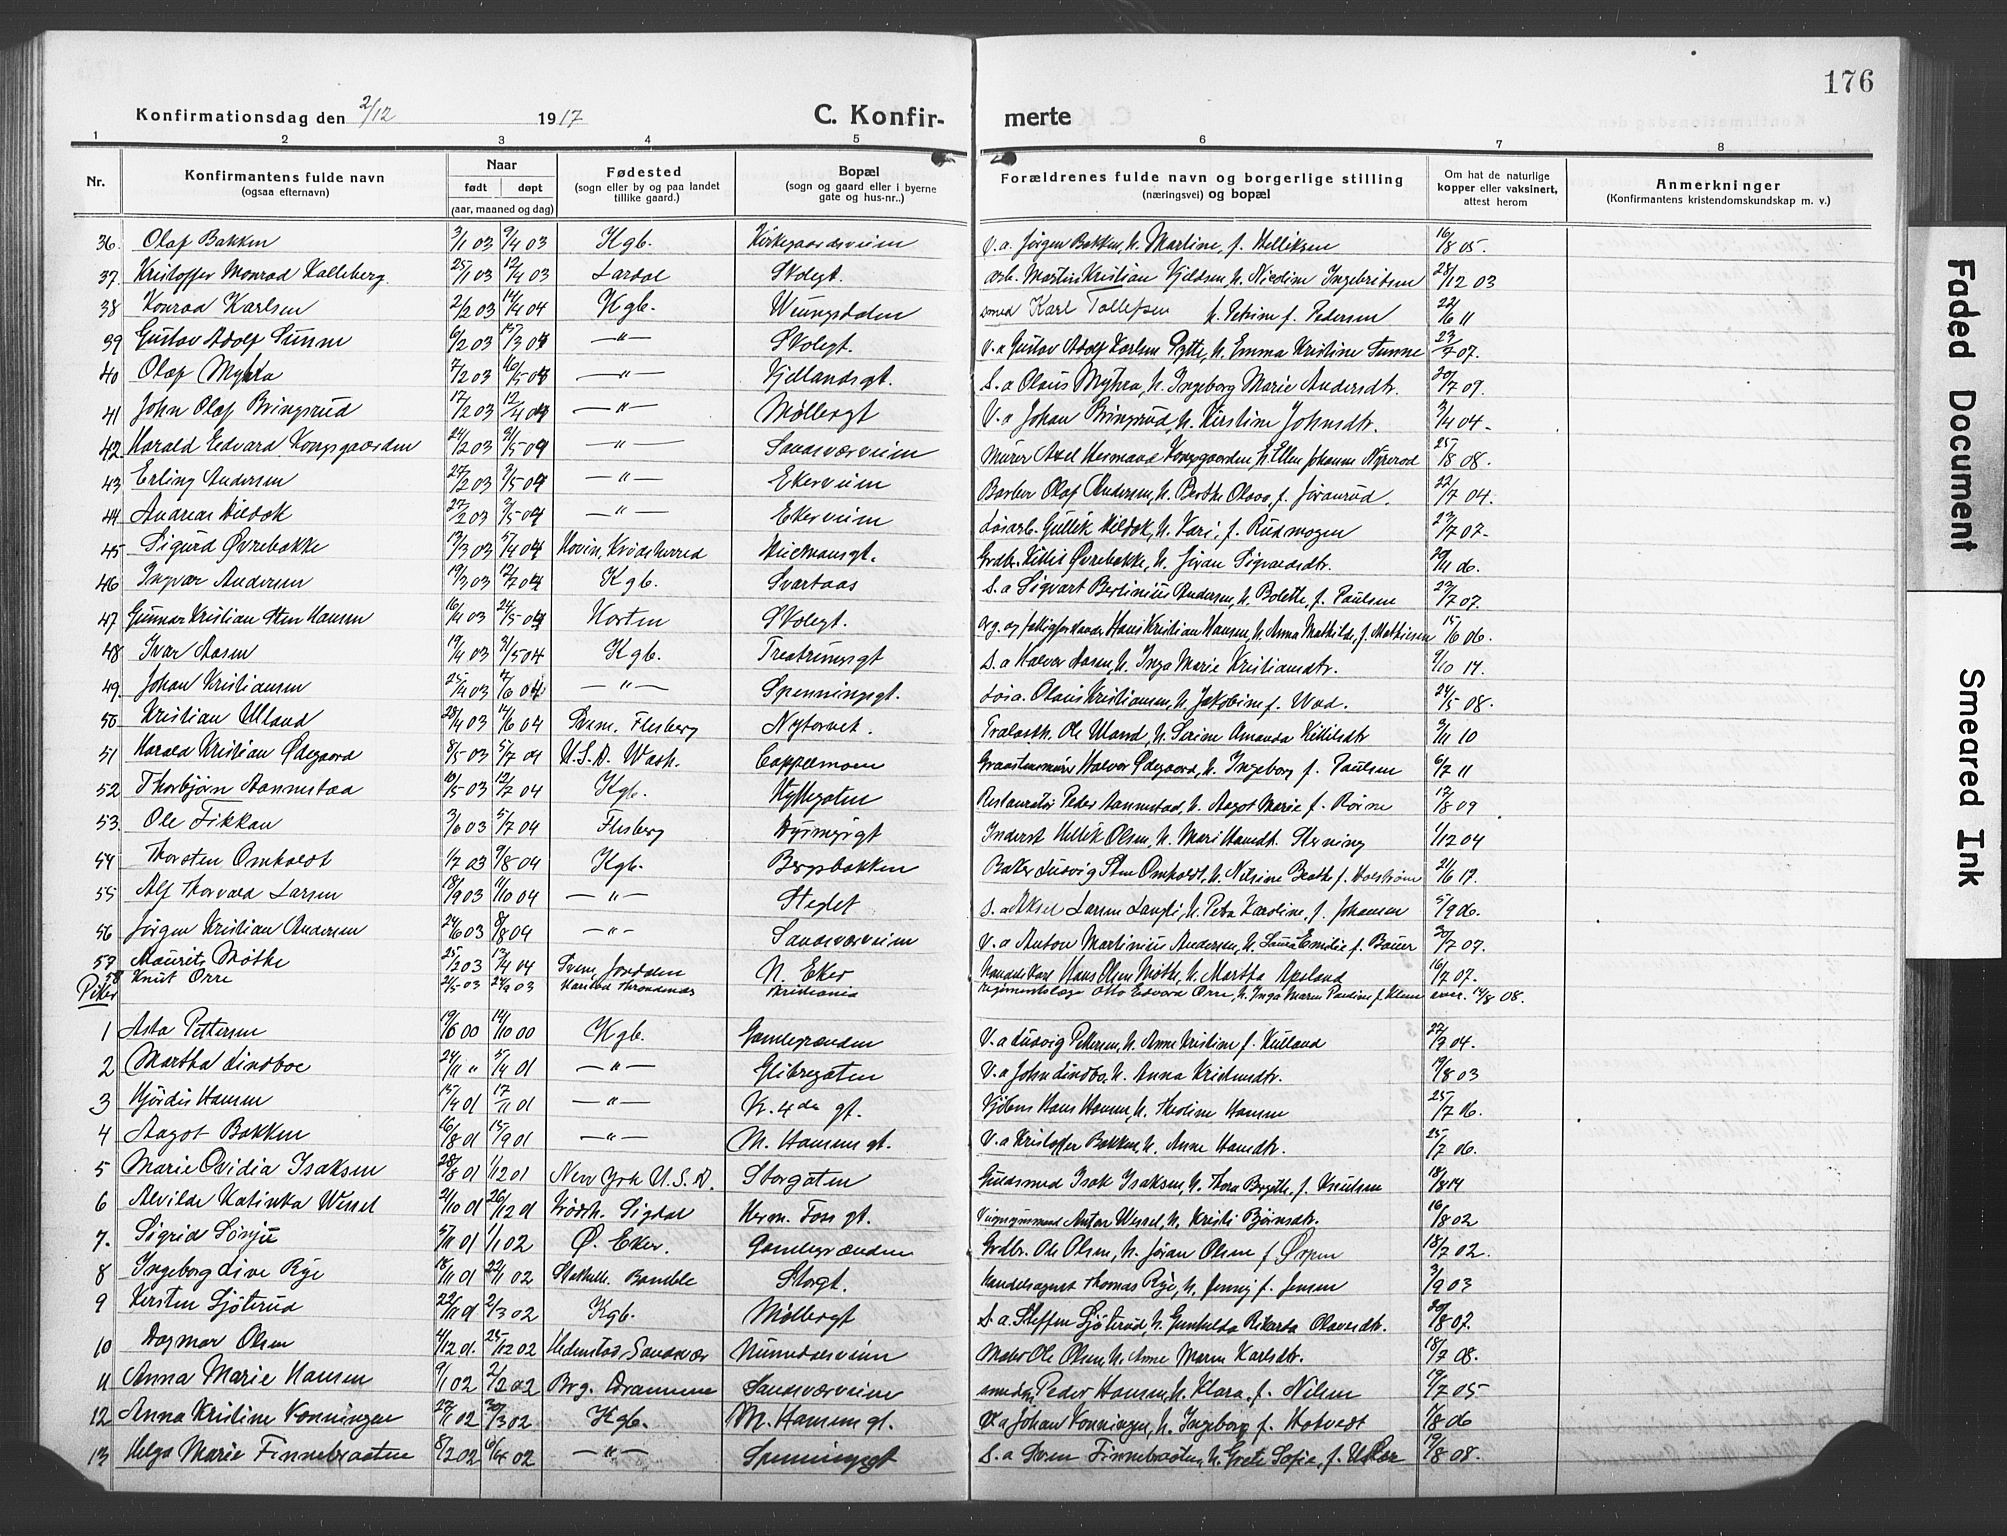 176
Konfirmationsdag den 2/12 1917 C. Konfir- merte
1 2 3 4 5 6 7 8
Nr. Konfirmantens fulde navn (ogsaa efternavn) Naar født døpt (aar, maaned og dag) Fødested (sogn eller by og paa landet tillike gaard.) Bopæl (sogn og gaard eller i byerne gate og hus-nr..) Forældrenes fulde navn og borgerlige stilling (næringsvei) og bopæl Om hat de naturlige kopper eller vaksinert, attest herom Anmerkninger (Konfirmantens kristendomskundskap m. v.)
36. Olaf Bakken 3/1 03 9/4 03 Kgb. Kirkegaardsveien V.a. Jørgen Bakken, h. Martine, f. Helliksen 16/8 05.
37. Kristoffer Monrad Kalleberg 25/1 03 12/4 03 Lardal Skolegt. arb. Martin Kristian Kjeldsen, h. Nicoline Ingebretsen 28/12 03
38 Konrad Karlsen 2/2 03 14/4 04 Kgb. smed Karl Tollefsen h. Petrine f. Pedersen 22/6 11
39 Gustav Adolf Sunne 6/2 03 Skolegt. V.a Gustav Adolf Karlsen Pytte, h. Emma Kristine Sunne 23/7 07.
40 Olaf Myhra 7/2 03 Kjellandsgt. S.a Olaus Myhra, h. Ingeborg Marie Andersdtr. 20/7 09.
41 John Olaf Bringsrud 17/2 03 Møllergt V.a Johan Bringsrud, h. Kirstine Johnsdtr. 3/4 04
42 Harald Edvard Kongsgaarden 24/2 03 Sandsværveien Murer Axel Hermand Kongsgaarden, h. Ellen Johanne Nyrerod 25/8 08.
43 Erling Andersen 27/2 03 Ekerveien Barber Olaf Andersen, h. Berthe Olava, f. Jøranrud. 22/7 04.
44 Andreas Vildok 27/2 03 Ekerveien Løsarb. Gullik Vildok, h. Kari, f. Rudmogen 23/7 07.
45 Sigurd Øvrebakke 13/3 03 5/4 04 Hovin, Krødsherred Hiemansgt. Grdbr. Kittil Øvrebakke, h. Jøran Sigvardsdtr. 20/11 06.
46 Ingvar Andersen 19/3 03 Kgb. Svartaas S.a Sigvart Bertinius Andersen, h. Bolette, f. Paulsen 23/7 07.
47 Gunnar Kristian Sten Hansen 16/4 03 24/5 04 Horten Skolegt. Org. og fattigforstander Hans Kristian Hansen, h. Anna Mathilde, f. Mathiesen 15/6 06.
48 Ivar Aasen 19/4 03 Kgb. Treatringsgt S.a Halvor Aasen, h. Inga Marie Kristiansdtr. 9/10 14.
49. Johan Kristiansen 25/4 03 Spenningsgt. Løsa. Olaus Kristiansen, h. Jakobine f. Wad. 24/5 08.
50 Kristian Ulland 28/4 03 14/6 04 Svene, Flesberg Nytorvet. Trælasth. Ole Uland, h. Serine Amanda Kittilsdtr 3/11 10
51 Harald Kristian Ødegaard 8/5 03 5/7 04 U.S.A. Wash. Cappelmoen Graastensmurer Halvor Ødegaard, h. Ingeborg f. Paulsen 6/7 11
52 Thorbjørn Aannestad 10/5 03 12/7 04 Kgb. Hyttegaten Restauratør Peder Aannestad, h. Aagot Marie f. Røine 12/8 09
53. Ole Fikkan 3/6 03 5/7 04 Flesberg Dyrmyrgt Inderst Hellik Olsen, h. Mari Hansdt. Stevning 1/12 04
54 Thorsten Omholdt 1/7 03 9/8 04 Kgb. Bergsbakken Baker Ludvig Sten Omholdt, h. Nilsine Beathe f. Holstrøm 21/6 17.
55 Alf Thorvald Larsen 18/9 03 11/10 04 Steglet S.a Aksel Larsen Langli, h. Petra Karoline, f. Johansen 5/9 06.
56 Jørgen Kristian Andersen 24/6 03 8/8 04 Sandsværveien V.a Anton Martinius Andersen, h. Laura Emilie f. Bauer 30/7 07.
57 Maurits Møthe 25/2 03 17/4 04 Svene, Jondalen N. Eker Handelskarl Hans Olsen Møthe, h. Martha Apeland 16/7 07.
58 Knut Orre 21/5 03 Harstad Throndenæs Kristiania Regimentslæge Otto Edvard Orre, h. Inga Marie Pauline f. Klem 14/8 08.
Piker
1 Asta Pettersen 19/6 00 14/10 00 Kgb. Gamlegrænden V.a Ludvig Pettersen, h. Anne Kristine f. Kulland 22/9 04.
2 Martha Lindboe 24/11 " 5/4 01 —"— Glitregaten V.a John Lindbo, h. Anna Kristensdtr. 19/8 03
3 Hjørdis Hansen 15/9 01 17/11 01 —"— K. 4des gt. Kjøbm Hans Hansen, h. Tholine Hansen 25/7 06.
4 Aagot Bakken 16/8 01 15/9 01 —"— M. Hansens gt. V.a Kristoffer Bakken, h. Anne Hansdtr. 25/7 06.
5 Marie Ovidia Isaksen 28/8 01 1/12 01 New York U.S.A. Storgaten Guldsmed Isak Isaksen, h. Thora Birgitte, f. Knutsen 18/8 14
6 Alvilde Katinka Wessel 21/10 01 26/12 01 Krødsh. Sigdal Herm. Foss gt. Anton Wessel, h. Kristi Bjørnsdtr. 16/8 02
7. Sigrid Sønju 5/11 01 1/1 02 Ø. Eker. Gamlegrænden Grdbr. Ole Olsen, h. Jøran Olsen f. Ørpen 18/7 02.
8 Ingeborg Live Rye 18/11 01 22/1 02 Stathelle Bamble Storgt. Handelsagent Thomas Rye, h. Jenny f. Jensen 3/9 03
9 Kirsten Sjøterud 22/11 01 2/3 02 Kgb. Møllergt S.a. Steffen Sjøterud, h. Gunhilda Rikarda Olavesdtr. 20/8 07.
10 Dagmar Olsen 4/12 01. 25/12 02 Hedenstad Sandsvær Numedalsveien Maler Ole Olsen, h. Anne Maren Karlsdtr. 18/7 08.
11 Anna Marie Hansen 9/1 02 2/2 02 Brg. Drammen Sandsværveien smedm. Peder Hansen, h. Klara, f. Nilsen 19/7 05
12 Anna Kristine Vonningen 27/1 02 30/3 02 Kgb. M. Hansens gt. V.a Johan Vonningen, h. Ingeborg f. Hotvedt 7/8 06
13 Helga Marie Finnebraaten 8/2 02 6/4 02 —"— Spenningsgt S.a Søren Finnebraaten, h. Grete Sofie, f. 19/8 08.
Faded Document
Smeared Ink